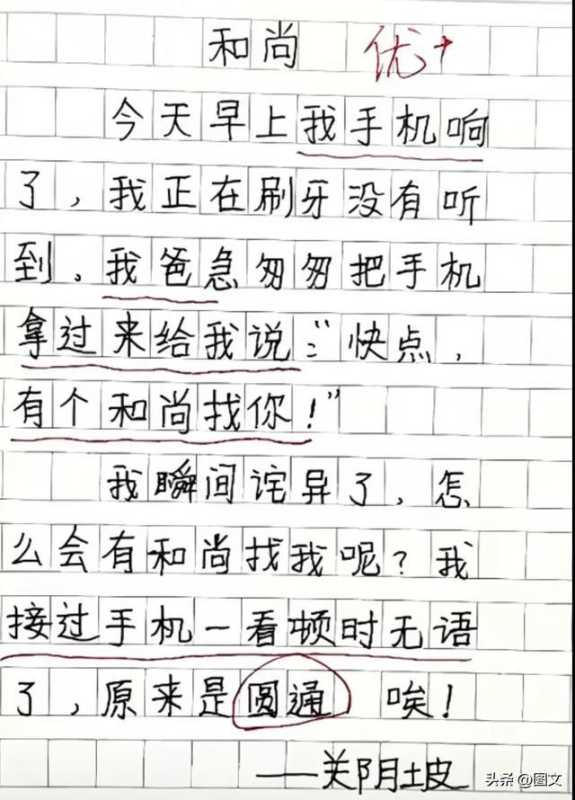 和尚 优+
今天早上我手机响
了，我正在刷牙没有听
到。我爸急匆匆把手机
拿过来给我说：“快点，
有个和尚找你！”
我瞬间诧异了，怎
么会有和尚找我呢？我
接过手机一看顿时无语
了，原来是圆通 唉！
——关阴坡
头条 @图文